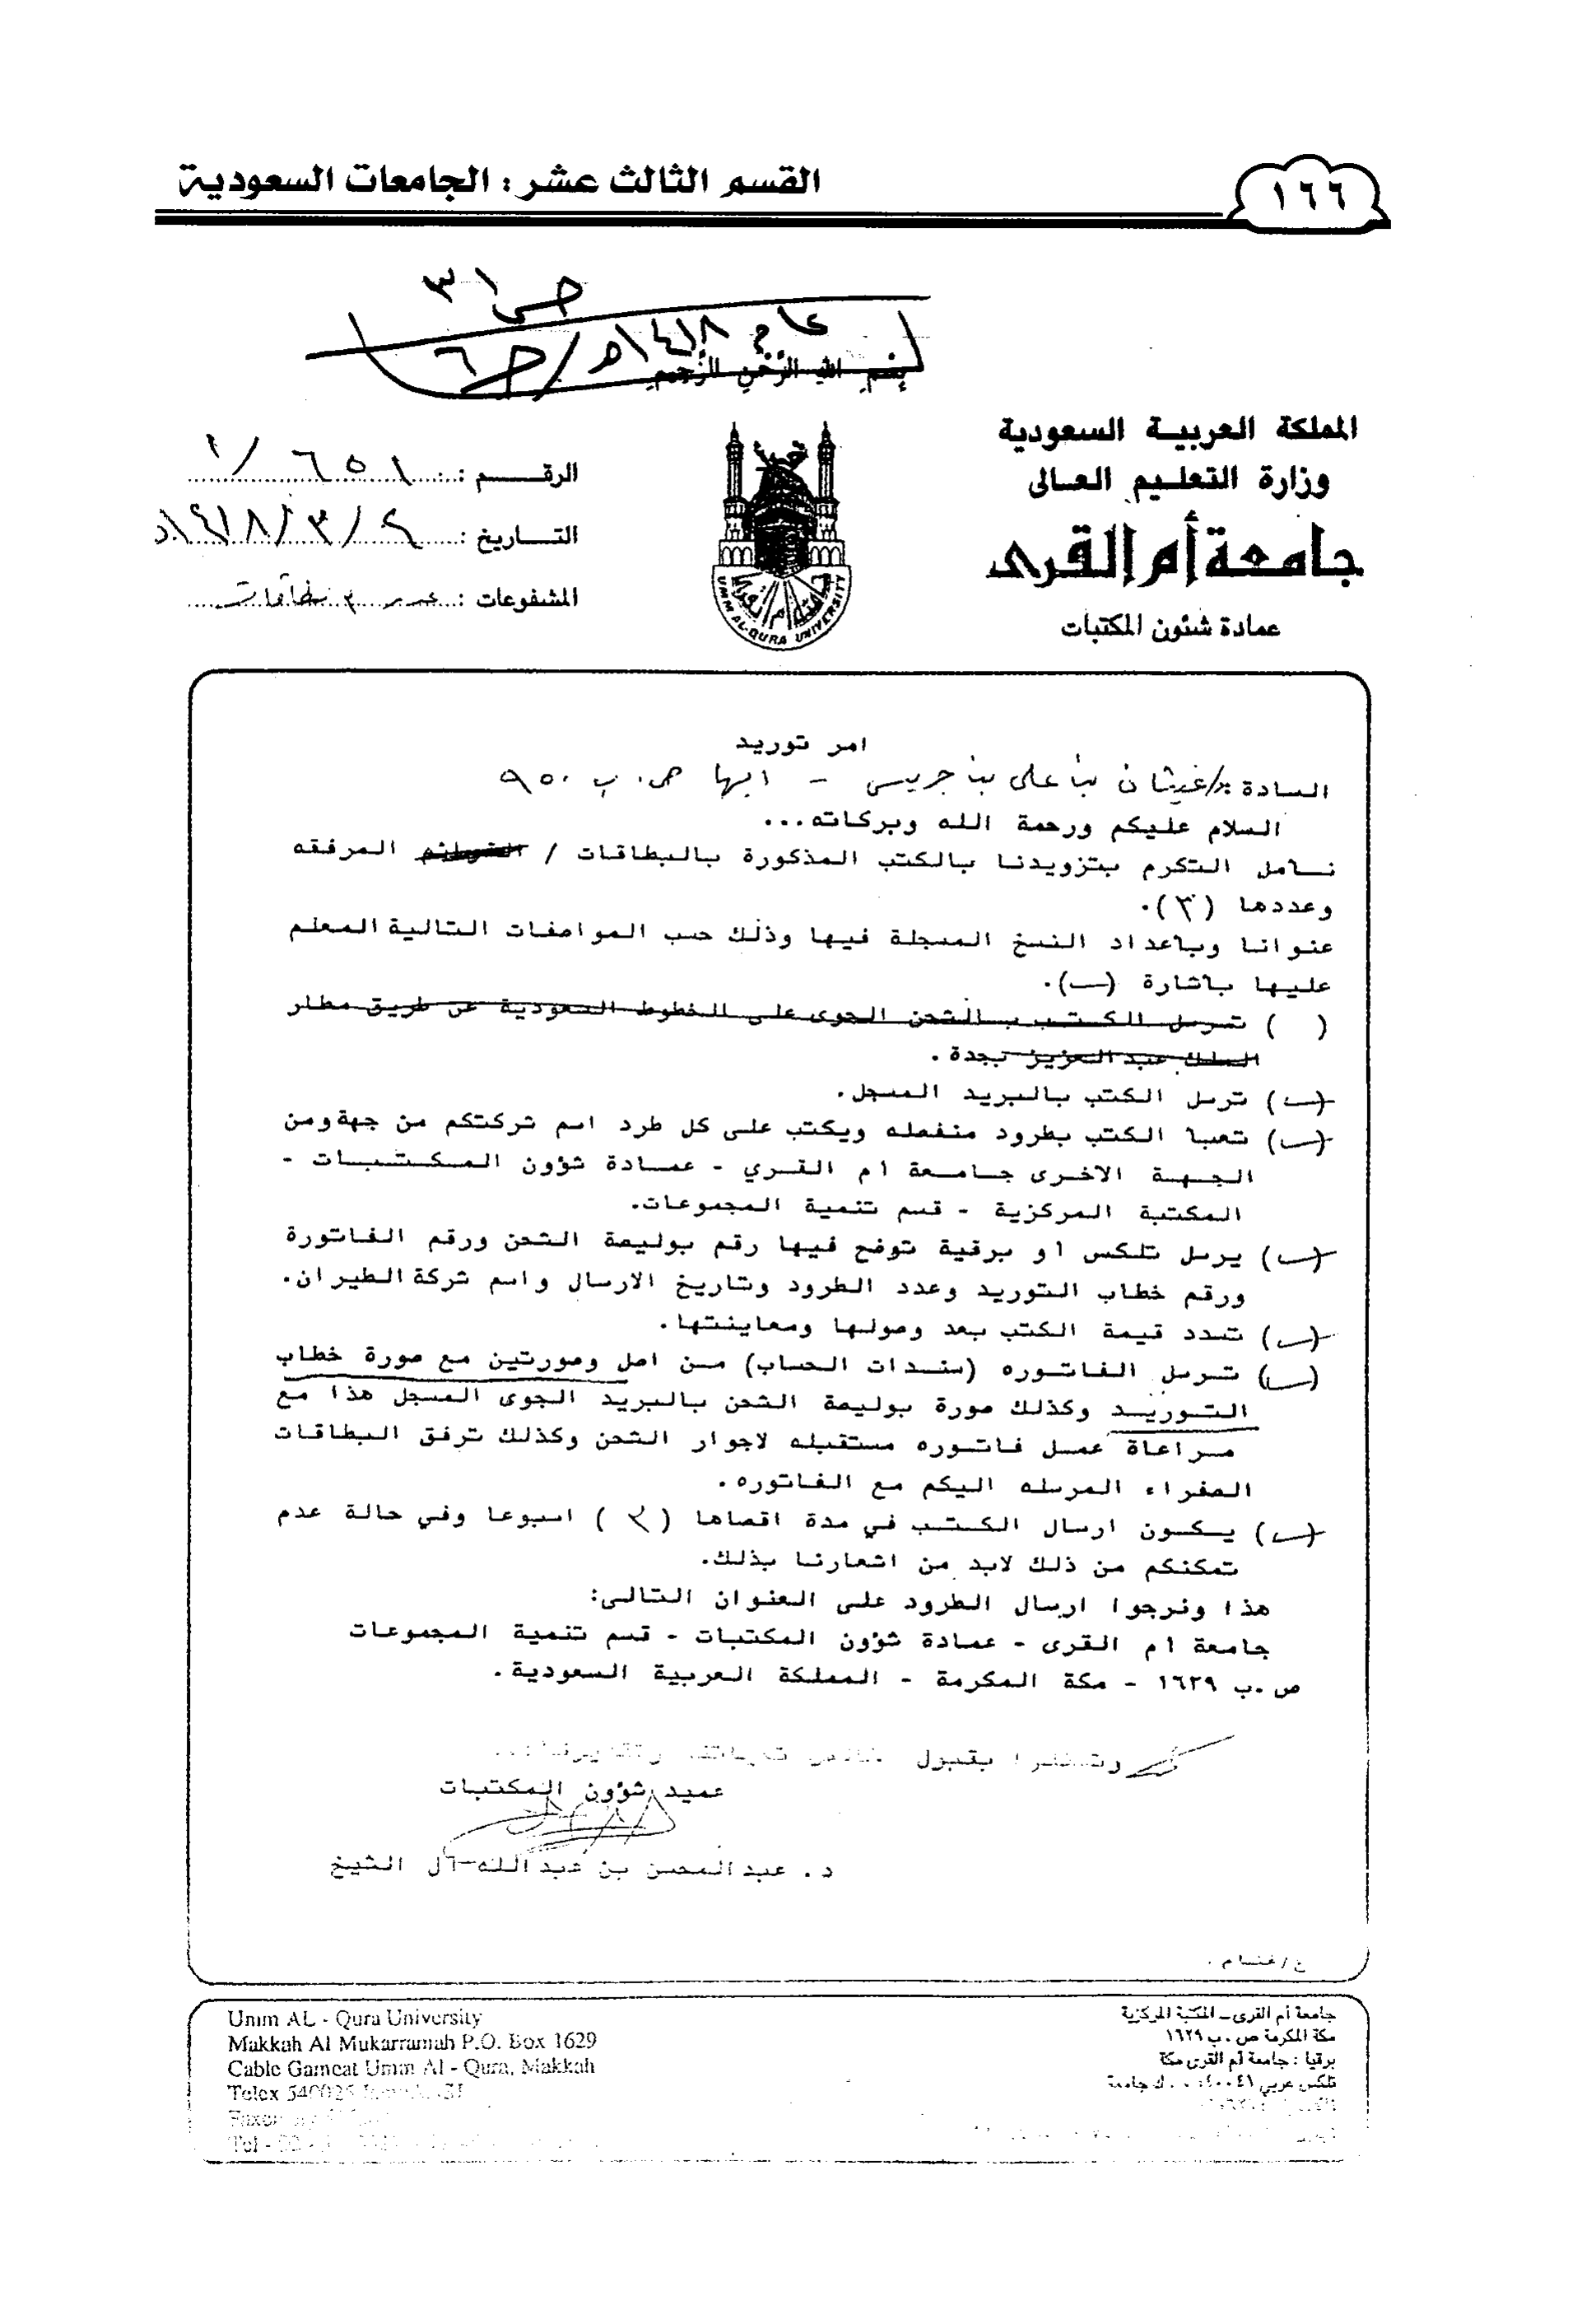 القسم الثالث عشر : الجامعات السعودية
١٦٦
ص ٣١
عام ١٤١٨هـ / ص ٦
بسم الله الرحمن الرحيم
المملكة العربية السعودية
وزارة التعليم العالى
جامعة أم القرى
عمادة شئون المكتبات
الرقــم :
التــاريخ : ١٤١٨/٣/٤هـ
المشفوعات : عدد ٣ بطاقات
جامعة أم القرى
UMM AL-QURA UNIVERSITY
امر توريد
السادة : د/ غيثان بن على بن جريس - ابها ص. ب ٩٥٠
السلام عليكم ورحمة الله وبركاته...
نـامل التكرم بتزويدنا بالكتب المذكورة بالبطاقات / القوائم المرفقه
وعددها (٣).
عنوانا وباعداد النسخ المسجلة فيها وذلك حسب المواصفات التالية المعلم
عليها باشارة (ــ).
( ) ترسل الكتب بالشحن الجوى على الخطوط السعودية عن طريق مطار
الملك عبدالعزيز بجدة .
(ــ) ترسل الكتب بالبريد المسجل.
(ــ) تعبا الكتب بطرود منفصله ويكتب على كل طرد اسم شركتكم من جهة ومن
الجهة الاخرى جامعة ام القري - عمادة شؤون المكتبات -
المكتبة المركزية - قسم تنمية المجموعات.
(ــ) يرسل تلكس او برقية توضح فيها رقم بوليصة الشحن ورقم الفاتورة
ورقم خطاب التوريد وعدد الطرود وتاريخ الارسال واسم شركة الطيران.
(ــ) تسدد قيمة الكتب بعد وصولها ومعاينتها.
(ــ) ترسل الفاتوره (سندات الحساب) من اصل وصورتين مع صورة خطاب
التوريد وكذلك صورة بوليصة الشحن بالبريد الجوى المسجل هذا مع
مراعاة عمل فاتوره مستقبله لاجوار الشحن وكذلك ترفق البطاقات
الصفراء المرسله اليكم مع الفاتوره.
(ــ) يكون ارسال الكتب في مدة اقصاها ( ) اسبوعا وفي حالة عدم
تمكنكم من ذلك لابد من اشعارنا بذلك.
هذا ونرجوا ارسال الطرود على العنوان التالى:
جامعة ام القرى - عمادة شؤون المكتبات - قسم تنمية المجموعات
ص.ب ١٦٢٩ - مكة المكرمة - المملكة العربية السعودية.
وتفضلوا بقبول
عميد شؤون المكتبات
د. عبدالمحسن بن عبدالله آل الشيخ
جامعة أم القرى - المكتبة المركزية
مكة المكرمة ص . ب ١٦٢٩
برقيا : جامعة أم القرى مكة
تلكس عربي
Umm AL - Qura University
Makkah Al Mukarramah P.O. Box 1629
Cable Gameat Umm Al - Qura, Makkah
Telex